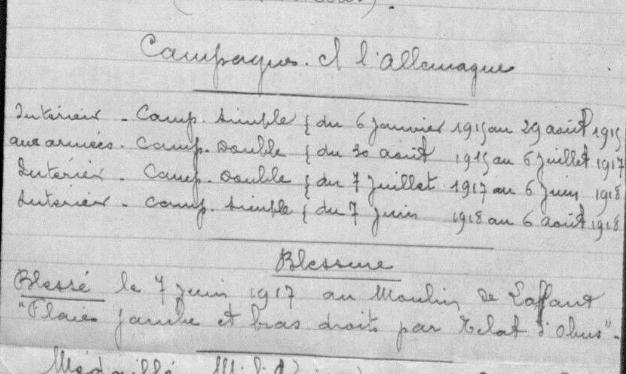 Campagnes. C/ l'Allemagne
Intérieur - Camp. simple { du 6 Janvier 1915 au 29 août 1915
aux armées. Camp. Double { du 30 août 1915 au 6 Juillet 1917
Intérieur - Camp. Double { du 7 Juillet 1917 au 6 Juin 1918
Intérieur - Camp. simple { du 7 Juin 1918 au 6 août 1918
Blessure
Blessé le 7 Juin 1917 au Moulin de Laffaux
"Plaies jambe et bras droits par Eclat d'obus".